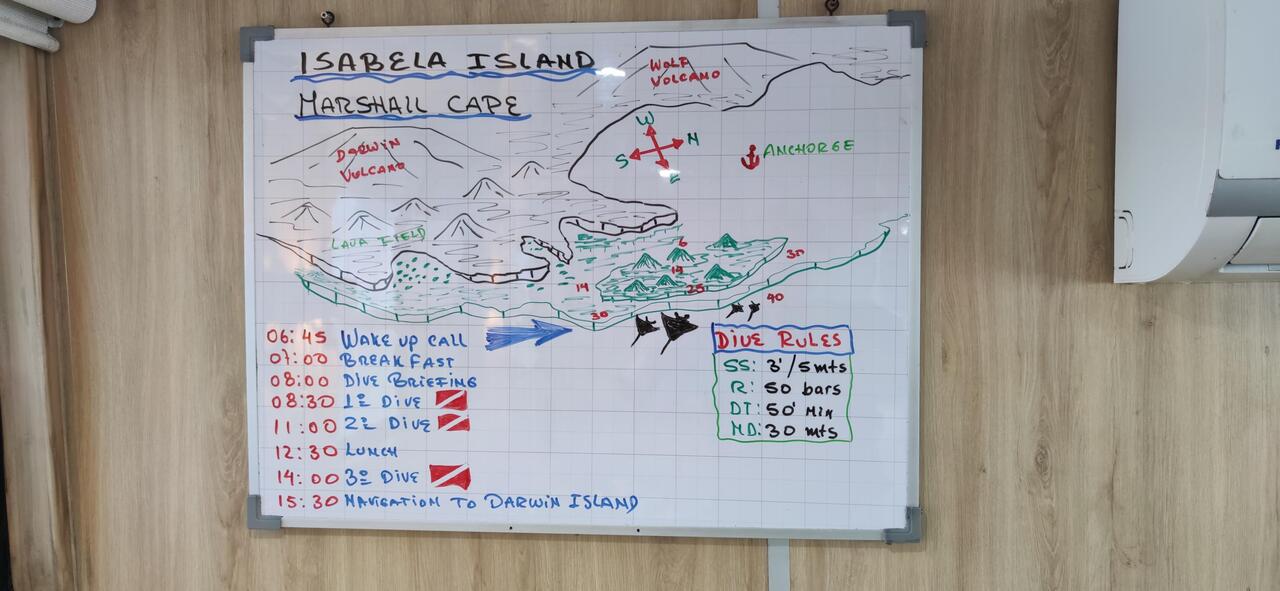 ISABELA ISLAND
MARSHALL CAPE
WOLF
VOLCANO
DARWIN
VULCANO
W
N
S
E
ANCHORGE
LAVA FIELD
6
30
14
14
25
40
30
06:45 WAKE UP CALL
07:00 BREAKFAST
08:00 DIVE BRIEFING
08:30 1º DIVE
11:00 2º DIVE
12:30 LUNCH
14:00 3º DIVE
15:30 NAVIGATION TO DARWIN ISLAND
DIVE RULES
SS: 3'/5mts
R: 50 bars
DT: 50' MIN
MD: 30 mts